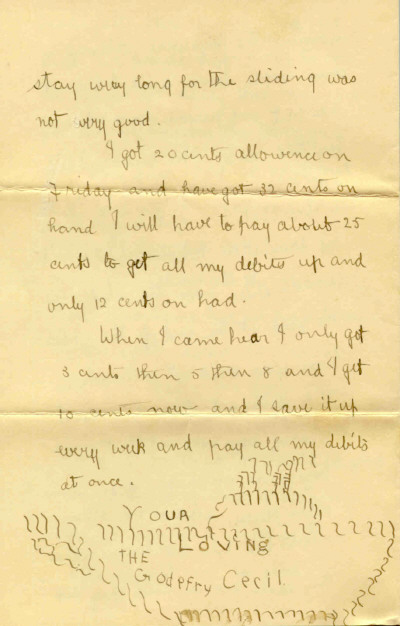 stay wrey long for the sliding was
not very good.
I got 20 cints allowence on
Friday and have got 32 cints on
hand I will have to pay about 25
cints to get all my debits up and
only 12 cents on had.
When I came hear I only got
3 cints then 5 then 8 and I get
10 cents now and I save it up
every week and pay all my debits
at once.
YOUR
LOVING
THE
Godefry Cecil